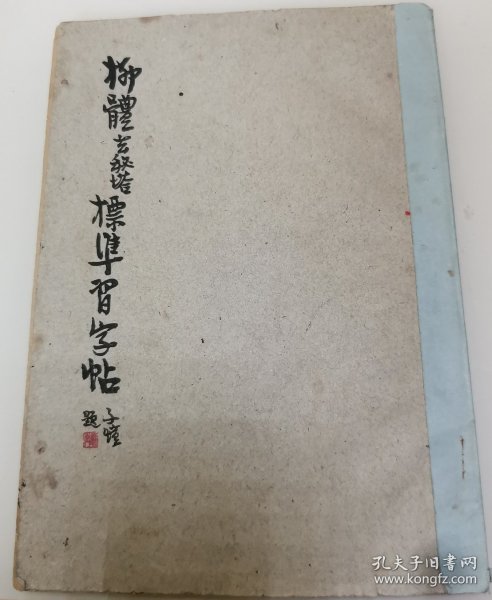 柳體玄秘塔標準習字帖
子愷
題
孔夫子旧书网
www.kongfz.com